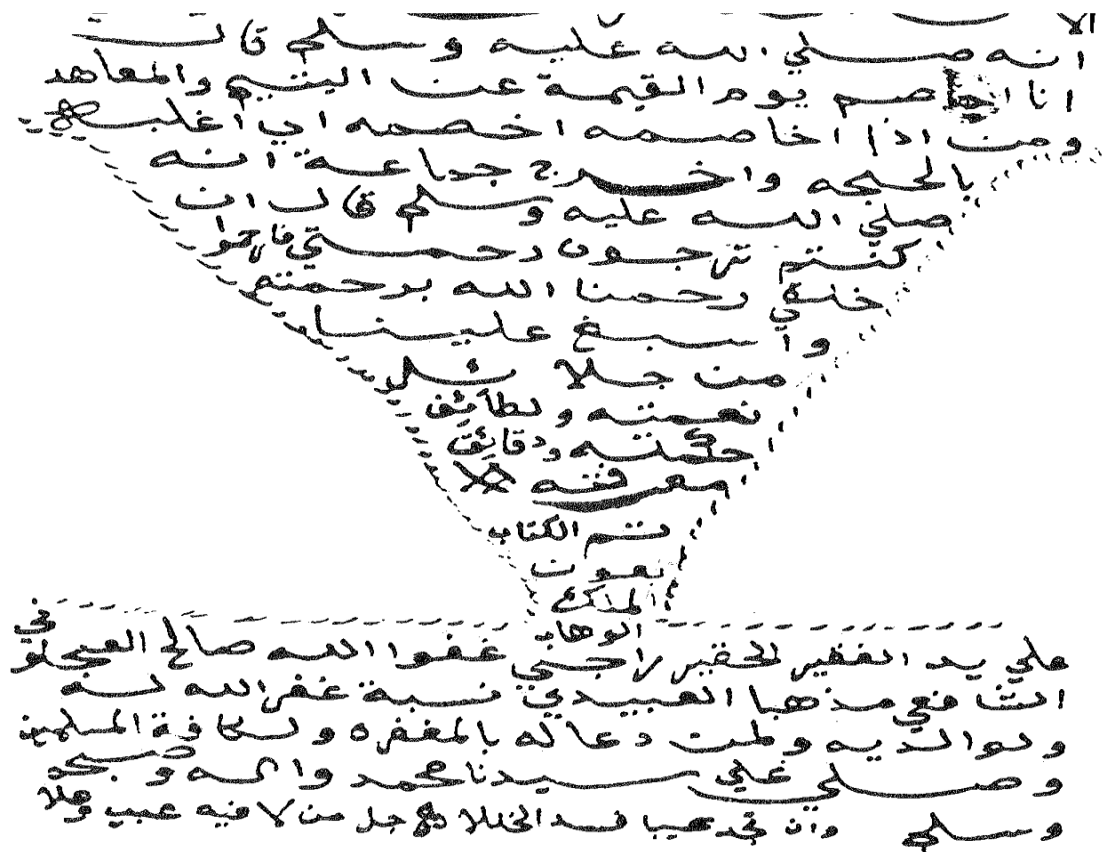 انه صلي الله عليه وسلم قال
انا اخاصم يوم القيمة عن اليتيم والمعاهد
ومن اذا اخاصمه اخصمه اي اغلبه
بالحجه واخرج جماعة انه
صلي الله عليه وسلم قال ان
كنتم ترجون رحمتي فارحموا
خلقي رحمنا الله برحمته
وأسبغ علينا
من جلا
نعمته ولطائف
حكمته ودقائق
معرفته
تم الكتاب
بعون
الملك
الوهاب
علي يد الفقير الحقير راجي غفوا الله صالح في
الشافعي مذهبا العبيدي نسبة غفر الله له
ولوالديه ولمن دعا له بالمغفره ولكافة المسلمين
وصلي علي سيدنا محمد واله وصحبه
وسلم وان تجد عيبا فسد الخللا جل من لا فيه عيب وعلا